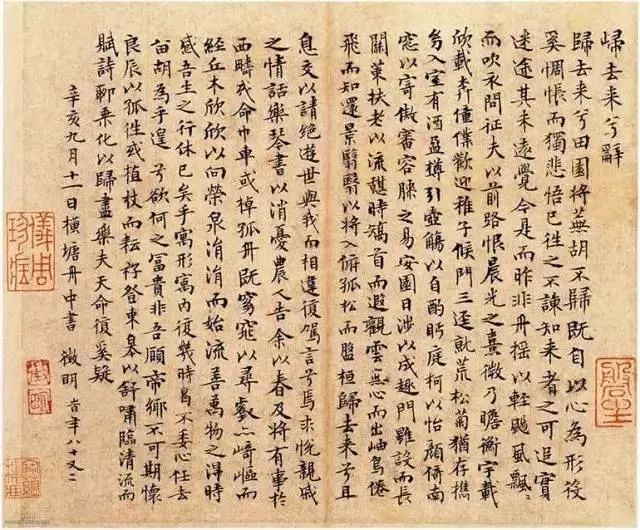 歸去来兮辭
歸去来兮田園將蕪胡不歸既自以心為形役
奚惆悵而獨悲悟已往之不諫知来者之可追實
迷途其未遠覺今是而昨非舟摇以輕颺風飄〻
而吹衣問征夫以前路恨晨光之熹微乃瞻衡宇載
欣載奔僮僕歡迎稚子候門三逕就荒松菊猶存攜
幼入室有酒盈樽引壺觴以自酌眄庭柯以怡顏倚南
窓以寄傲審容膝之易安園日涉以成趣門雖設而長
關策扶老以流憩時矯首而遐觀雲無心而出岫鳥倦
飛而知還景翳翳以將入撫孤松而盤桓歸去来兮且
息交以請絶遊世與我而相遺復駕言兮焉求悅親戚
之情話樂琴書以消憂農人告余以春及將有事於
西疇或命巾車或棹孤舟既窈窕以尋壑亦崎嶇而
經丘木欣欣以向榮泉涓涓而始流善萬物之得時
感吾生之行休已矣乎寓形寓內復幾時曷不委心任去
留胡為乎遑兮欲何之富貴非吾願帝鄉不可期懷
良辰以孤往或植杖而耘耔登東皋以舒嘯臨清流而
賦詩聊乘化以歸盡樂夫天命復奚疑
辛亥九月十一日橫塘舟中書 徵明 時年八十又二
儀周珍藏